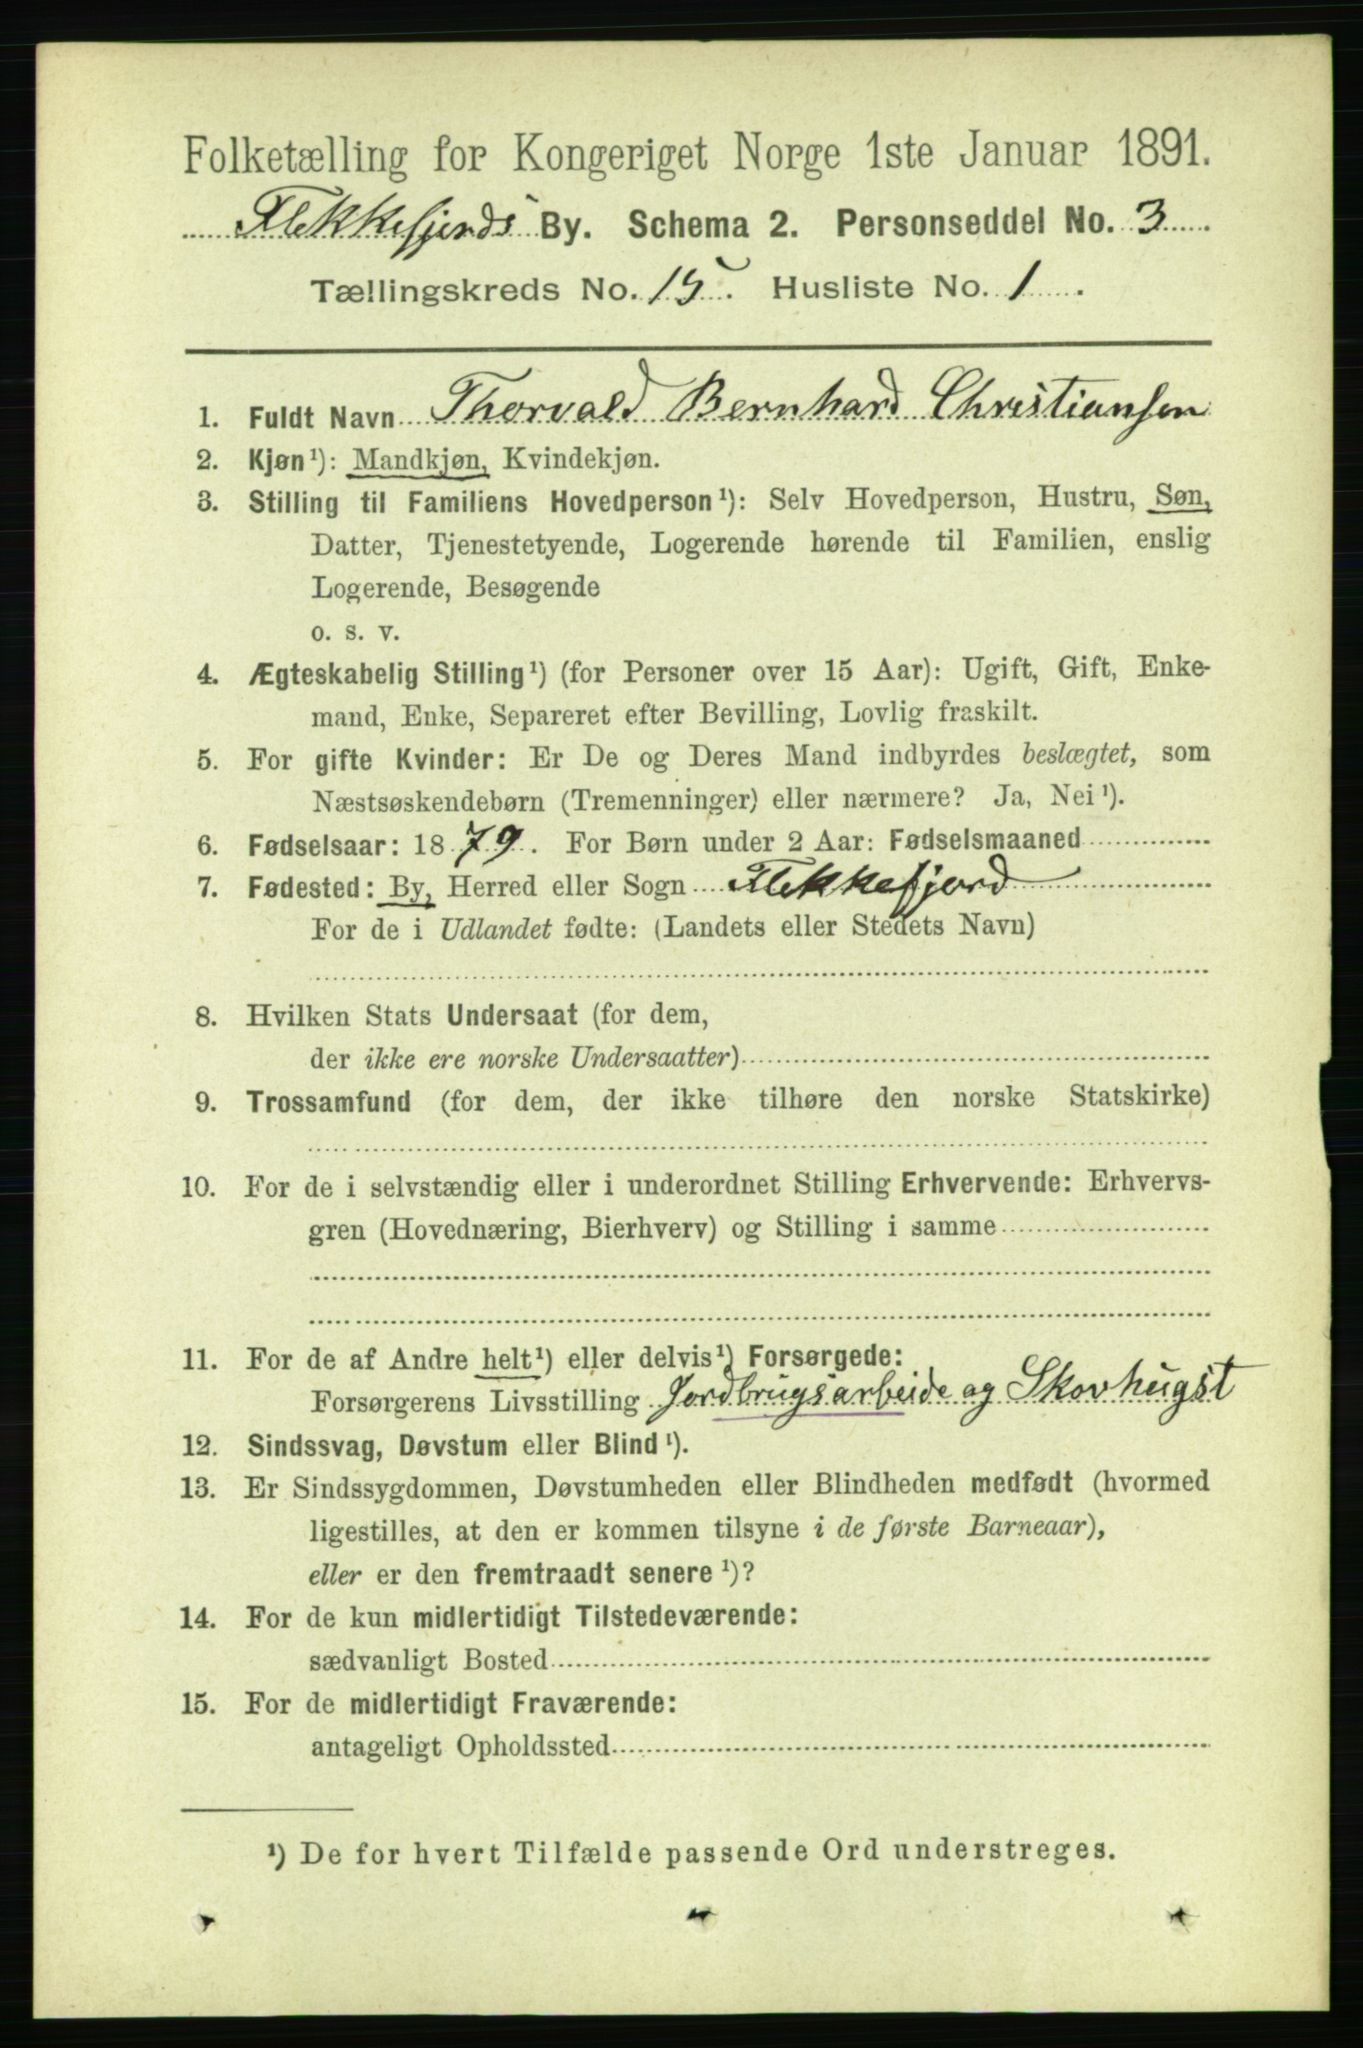 Folketælling for Kongeriget Norge 1ste Januar 1891.
Flekkefjords By. Schema 2. Personseddel No. 3
Tællingskreds No. 15. Husliste No. 1.
1. Fuldt Navn Thorvald Bernhard Christiansen
2. Kjøn¹): Mandkjøn, Kvindekjøn.
3. Stilling til Familiens Hovedperson¹): Selv Hovedperson, Hustru, Søn,
Datter, Tjenestetyende, Logerende hørende til Familien, enslig
Logerende, Besøgende
o. s. v.
4. Ægteskabelig Stilling¹) (for Personer over 15 Aar): Ugift, Gift, Enke-
mand, Enke, Separeret efter Bevilling, Lovlig fraskilt.
5. For gifte Kvinder: Er De og Deres Mand indbyrdes beslægtet, som
Næstsøskendebørn (Tremenninger) eller nærmere? Ja, Nei¹).
6. Fødselsaar: 1879. For Børn under 2 Aar: Fødselsmaaned
7. Fødested: By, Herred eller Sogn Flekkefjord
For de i Udlandet fødte: (Landets eller Stedets Navn)
8. Hvilken Stats Undersaat (for dem,
der ikke ere norske Undersaatter)
9. Trossamfund (for dem, der ikke tilhøre den norske Statskirke)
10. For de i selvstændig eller i underordnet Stilling Erhvervende: Erhvervs-
gren (Hovednæring, Bierhverv) og Stilling i samme
11. For de af Andre helt¹) eller delvis¹) Forsørgede:
Forsørgerens Livsstilling Jordbrugsarbeide og Skovhugst
12. Sindssvag, Døvstum eller Blind¹).
13. Er Sindssygdommen, Døvstumheden eller Blindheden medfødt (hvormed
ligestilles, at den er kommen tilsyne i de første Barneaar),
eller er den fremtraadt senere¹)?
14. For de kun midlertidigt Tilstedeværende:
sædvanligt Bosted
15. For de midlertidigt Fraværende:
antageligt Opholdssted
¹) De for hvert Tilfælde passende Ord understreges.